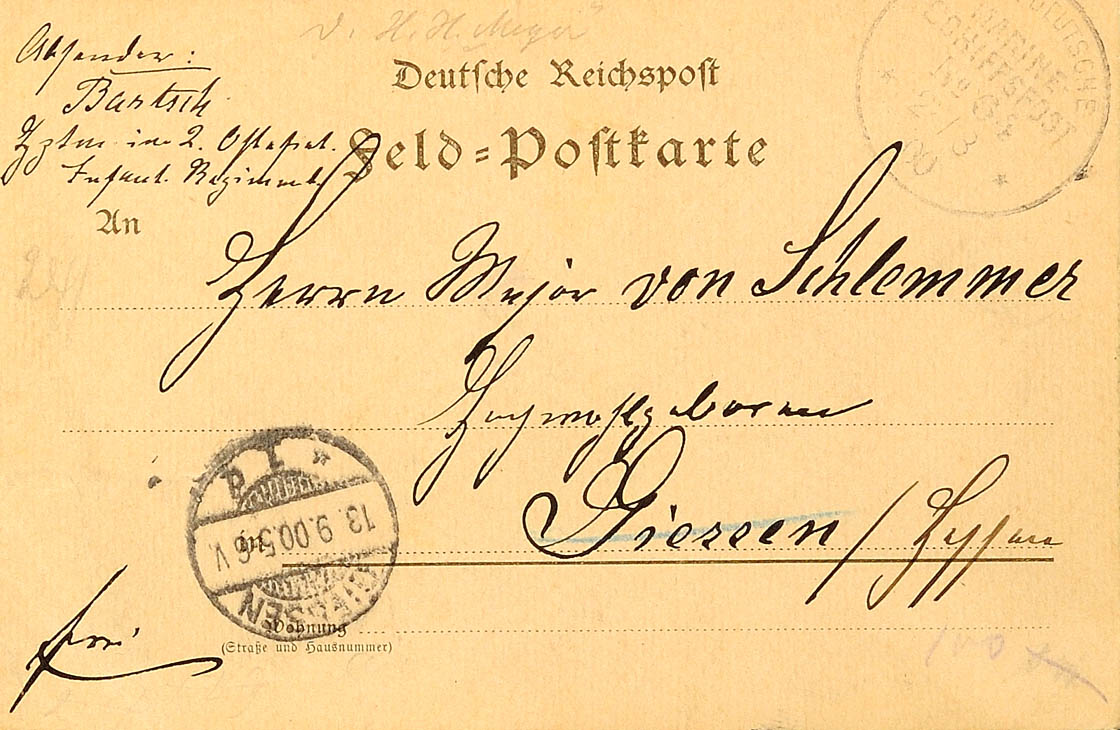 D. H. H. Meyer"
Absender:
Bartsch
Hptm. im 2. Ostasiat.
Infant. Regiment.
Deutsche Reichspost
Feld-Postkarte
DEUTSCHE
MARINE-
SCHIFFSPOST
No 64
21/3
00
An
Herrn Major von Schlemmer
Hochwohlgeboren
Giessen / Hessen
in
GIESSEN
13.9.00.5-6V.
Wohnung
(Straße und Hausnummer)
frei